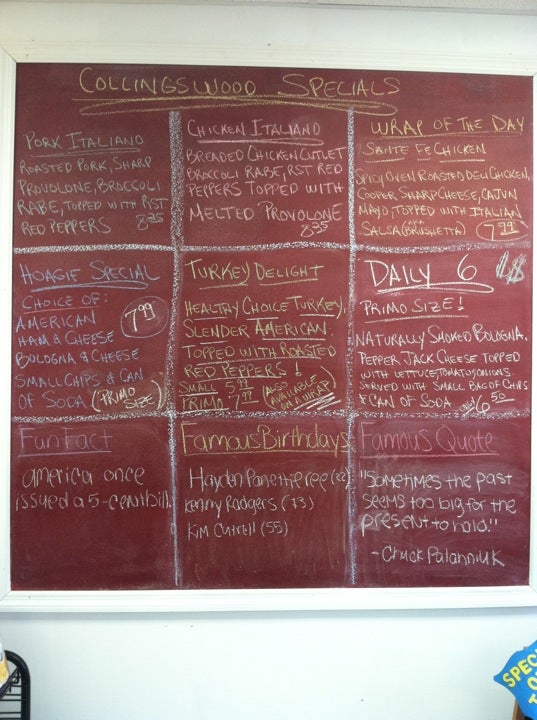 COLLINGSWOOD SPECIALS
PORK ITALIANO
ROASTED PORK, SHARP
PROVOLONE, BROCCOLI
RABE, TOPPED WITH RST
RED PEPPERS 8.35
CHICKEN ITALIANO
BREADED CHICKEN CUTLET
BROCCOLI RABE, RST RED
PEPPERS TOPPED WITH
MELTED PROVOLONE
8.35
WRAP OF THE DAY
SANTE FE CHICKEN
SPICY OVEN ROASTED DELI CHICKEN,
COOPER SHARP CHEESE, CAJUN
MAYO, TOPPED WITH ITALIAN
SALSA (BRUSHETTA) 7.99
HOAGIE SPECIAL
CHOICE OF:
AMERICAN 7.99
HAM & CHEESE
BOLOGNA & CHEESE
SMALL CHIPS & CAN
OF SODA (PRIMO SIZE)
TURKEY DELIGHT
HEALTHY CHOICE TURKEY,
SLENDER AMERICAN
TOPPED WITH ROASTED
RED PEPPERS!
SMALL 5.99
PRIMO 7.99 (ALSO AVAILABLE IN A WRAP)
DAILY 6
PRIMO SIZE!
NATURALLY SMOKED BOLOGNA,
PEPPER JACK CHEESE TOPPED
WITH LETTUCE, TOMATO, ONIONS.
SERVED WITH SMALL BAG OF CHIPS
& CAN OF SODA 6.50
Fun Fact
america once
issued a 5-cent bill.
Famous Birthdays
Hayden Panettieree (22)
Kenny Rodgers (73)
Kim Cattrell (55)
Famous Quote
"Sometimes the past
seems too big for the
present to hold."
- Chuck Palahniuk
SPEC
O
T